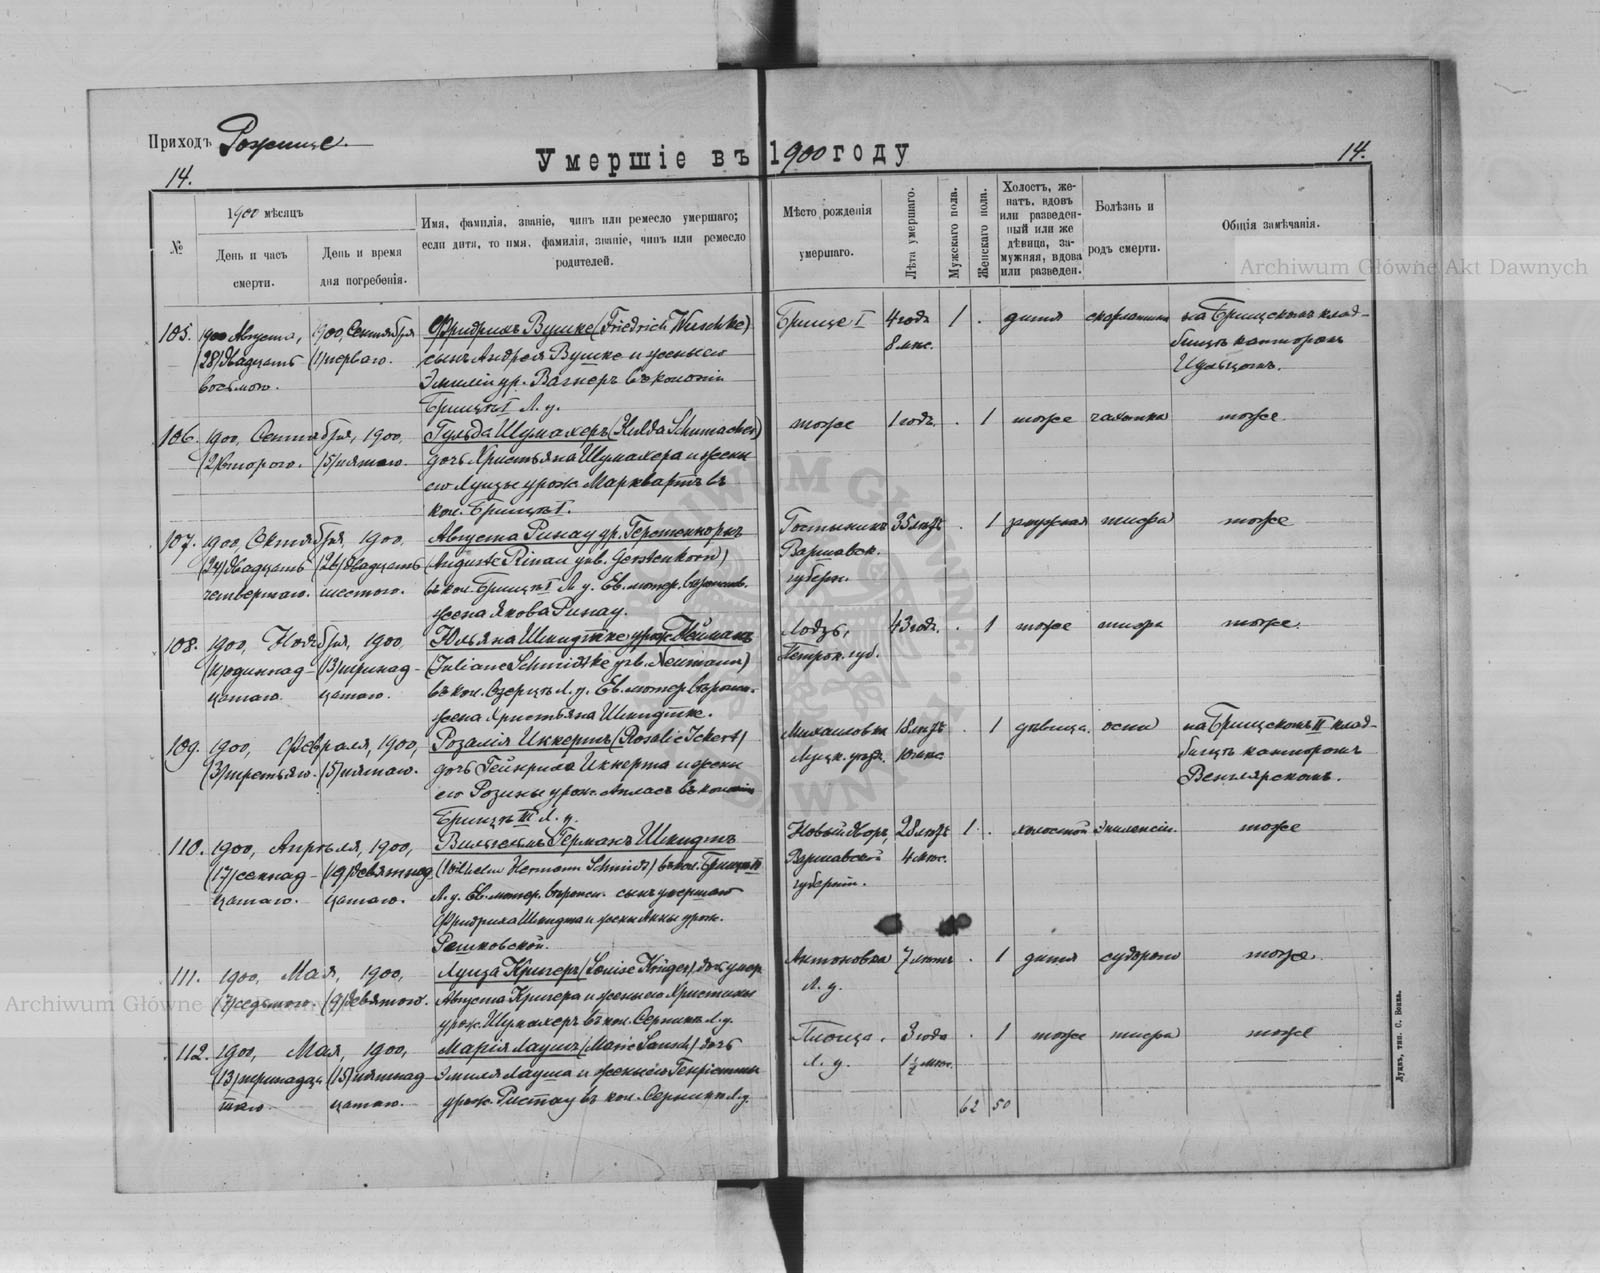 Приходъ Рожище.
Умершіе въ 1900 году
14.
14.
№
1900 мѣсяцъ
День и часъ
смерти.
День и время
дня погребенія.
Имя, фамилія, званіе, чинъ или ремесло умершаго;
если дитя, то имя, фамилія, званіе, чинъ или ремесло
родителей.
Мѣсто рожденія
умершаго.
Лѣта умершаго.
Мужскаго пола.
Женскаго пола.
Холостъ, же-
натъ, вдовъ
или разведен-
ный или же
дѣвица, за-
мужняя, вдова
или разведен.
Болѣзнь и
родъ смерти.
Общія замѣчанія.
105. 1900 Августа, 1900, Сентября Фридрихъ Вушке (Friedrich Wuschke) Брище I 4 года 1 . дитя скарлатина на Брищскомъ клад-
(28) двадцать (1) перваго. сынъ Андрея Вушке и жены его 8 мѣс. бищѣ канторомъ
восьмого. Эмиліи ур. Вагнеръ въ колоніи
Брищѣ I Л. у.
106. 1900, Сентября, 1900, Гульда Шумахеръ (Hulda Schumacher) тоже 1 годъ . 1 тоже чахотка тоже
(2) второго. (5) пятаго. дочь Христьяна Шумахера и жены
его Луизы урож. Марквартъ въ
кол. Брищѣ I.
107. 1900, Октября, 1900, Августа Ринау ур. Герстенкорнъ Гостынинъ 35 лѣтъ . 1 замужняя тифа тоже
(24) двадцать (26) двадцать (Auguste Rinau geb. Gerstenkorn) Варшавск.
четвертаго. шестого. въ кол. Брищѣ I Л. у. Ев. лютер. вѣроисп. губерн.
жена Якова Ринау.
108. 1900, Ноября, 1900, Юльяна Шмидтке урож. Нейманъ Лодзь, 43 год. . 1 тоже тифа тоже.
(11) одиннад- (13) тринад- (Juliane Schmidtke geb. Neumann) Петрок. губ.
цатаго. цатаго. въ кол. Озерцѣ Л. у. Ев. лютер. вѣроисп.
жена Христьяна Шмидтке.
109. 1900, Февраля, 1900, Розалія Иккертъ (Rosalie Ickert) Михаиловка 18 лѣтъ . 1 дѣвица. оспы на Брищскомъ II клад-
(3) третьяго. (5) пятаго. дочь Гейнриха Иккерта и жены Луцк. уѣзд. 10 мѣс. бищѣ канторомъ
его Розины урож. Атласъ въ колоніи Венглярскомъ.
Брищѣ III Л. у.
110. 1900, Апрѣля, 1900, Вильгельмъ Германъ Шмидтъ Новый Дворъ, 28 лѣтъ 1 . холостой эпилепсіи. тоже
(17) семнад- (19) девятнад- (Wilhelm Hermann Schmidt) въ кол. Брищѣ II Варшавской 4 мѣс.
цатаго. цатаго. Л. у. Ев. лютер. вѣроисп. сынъ умершаго губерніи.
Фридриха Шмидта и жены Анны урож.
Рашковской.
111. 1900, Мая, 1900, Луиза Кригеръ (Louise Krüger) дочь умер. Антоновка 7 лѣтъ . 1 дитя судороги тоже.
(7) седьмого. (9) девятого. Августа Кригера и жены его Христины Л. у.
урож. Шумахеръ въ кол. Серникъ Л. у.
112. 1900, Мая, 1900, Марія Лаушъ (Marie Lausch) дочь 3 года . 1 тоже тифа тоже
(13) тринадца- (15) пятнад- Эмиля Лауша и жены его Генріетты Л. у. 1½ мѣс.
таго цатаго. урож. Ристау въ кол. Серники Л. у.
62 50
Луцкъ, тип. С. Бокка.
Archiwum Główne Akt Dawnych
Archiwum Główne Akt Dawnych
ARCHIWUM GŁÓWNE AKT DAWNYCH